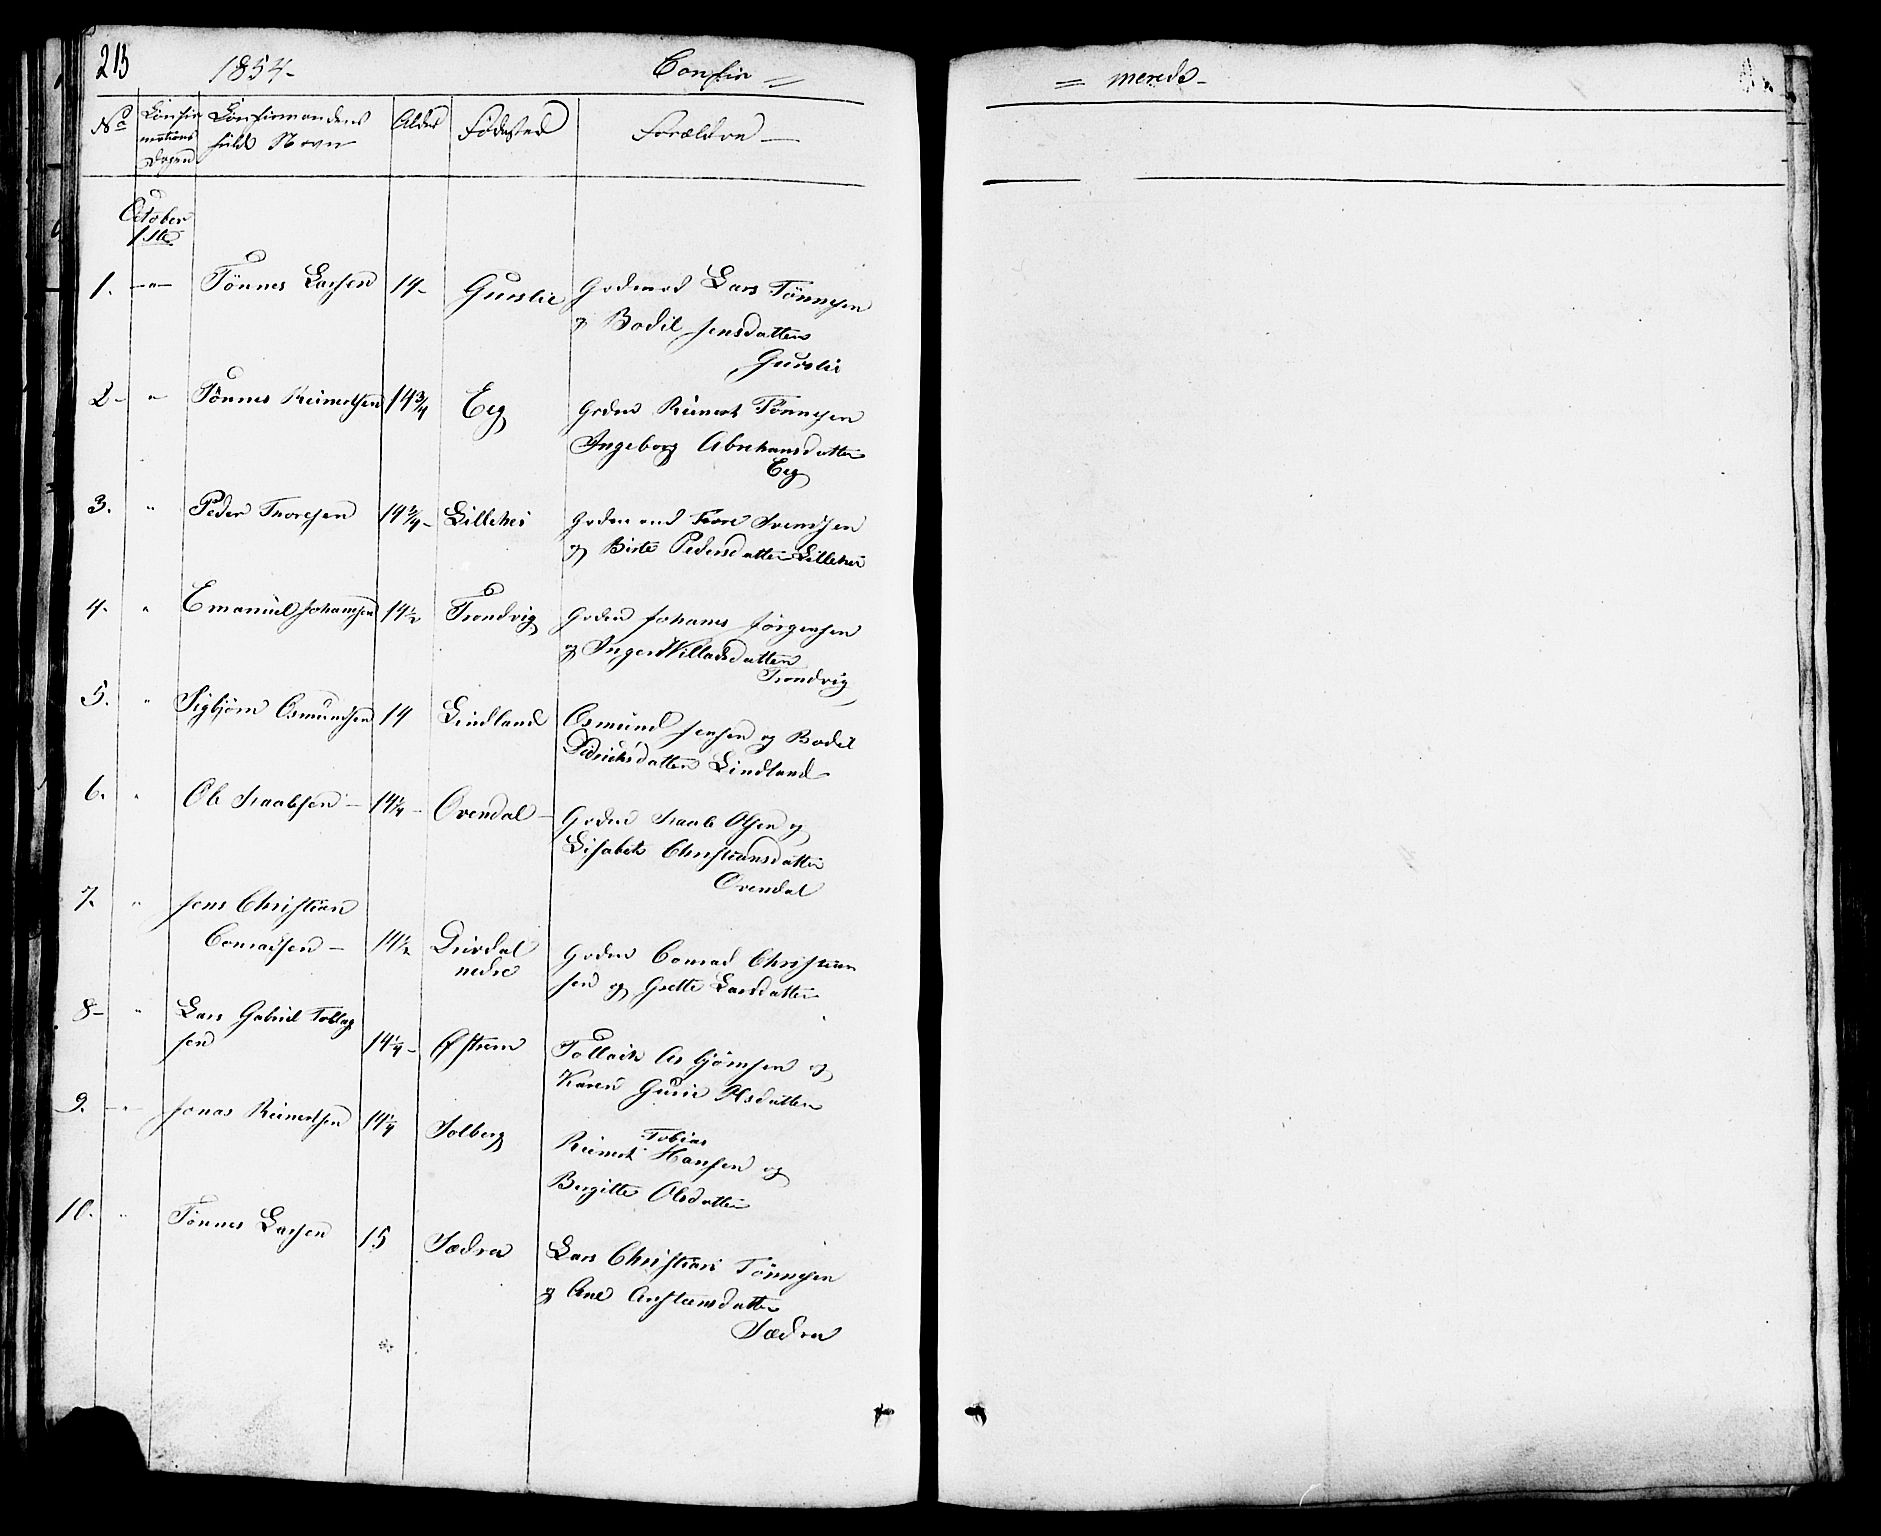 213 1854- Confir = = merede-
No Confir Confirmandens Alder Fødested Forældre
mations fulde Navn
Dagen
October
1ste
1. -"- Tönnes Larsen 14- Gursli Gdmd Lars Tönnesen
og Bodil Jensdatter
Gursli
2- " Tönnes Reinertsen 14 3/4 Eeg Gdmd Reinert Tönnesen
Ingeborg Abrehamsdatter
Eeg
3. " Peder Thoresen 14 3/4- Lillehei Gdmd Tore Svendsen
og Birte Pedersdatter Lillehei
4. " Emanuel Johansen 14 1/2 Trondvig Gdmd Johanes Jörgensen
og Inger Willadsdatter
Trondvig
5. " Sigbjörn Osmundsen 14 Lindland Osmund Jensen og Bodil
Didriksdatter Lindland
6. " Ole Traalsen- 14 1/4- Ovendal- Gdmd Traale Olsen og
Lisabeth Christiansdatter
Ovendal
7. " Jens Christian
Conradsen- 14 1/2 Duvdal Gdmd Conrad Christian
nedre sen og Grette Larsdatter
8- " Lars Gabriel Tollags
sen 14 1/4- Øfstrem Tollack As björnsen og
Karen Gurie Alsdatter
9. -"- Jonas Reinertsen 14 1/4 Solberg Tobias
Reinert Hansen og
Bergitte Olsdatter
10. " Tönnes Larsen 15 Sædra Lars Christian Tönnesen
og Ane Anstensdatter
Sædra